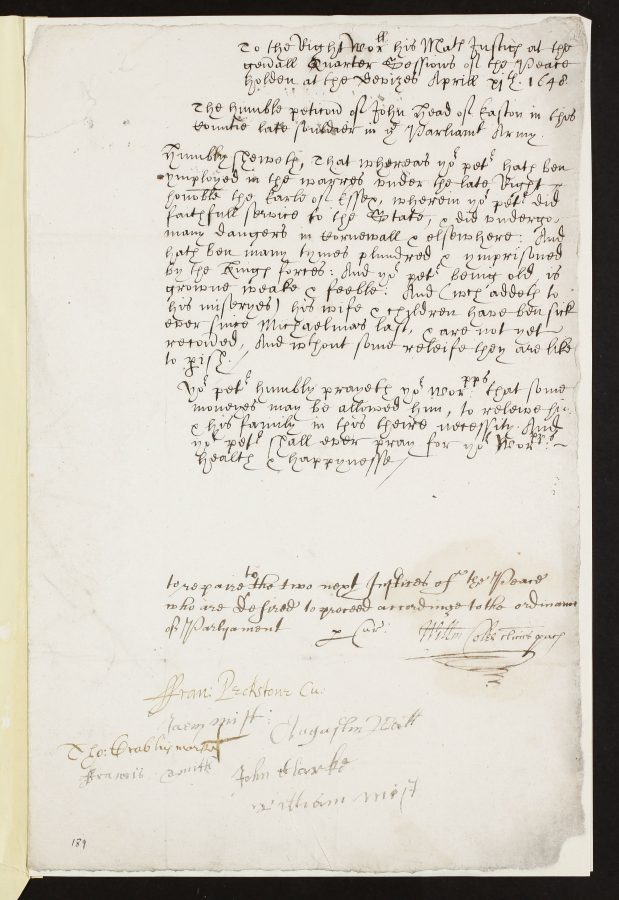 To the Right Worll his Maties Justices at the
genrall Quarter Sessions of the Peace
holden at the Devizes Aprill 1648
The humble peticon of John Head of Easton in this
Countie late souldier in ye Parliamt Army.
Humbly Sheweth, That whereas yor petr hath ben
ymployed in the warres vnder the late Right
honoble the Earle of Essex, wherein yor petr did
faithfull service to the State, & did vndergo
many dangers in Cornewall & elsewhere: And
hath ben many tymes plundred & ymprisoned
by the Kings forces: And yor petr being old is
growne weake & feeble: And (wch addeth to
his miseryes) his wife & children have ben sick
ever since Michaelmas last, & are not yet
recoued, And wthout some releife they are like
to pish /
Yor petr humbly prayeth yor Worpps that some
moneyes may be allowed him, to releive him
& his family in this theire necessity. And
yor petr shall ever pray for yor Worpps
health & happynesse /
to repaire to the two next Justices of the Peace
who are desired to proceed accordinge to the ordinance
of Parlyament p Cur:
Willm Coles clicus pacis
ffran: Peckstone Cu.
mist:
Augustin
Tho:
ffrancis Smith
John Clarke
William mist
189